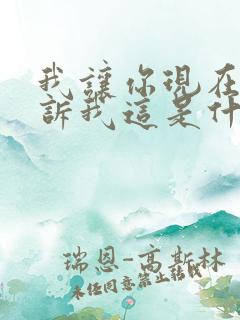 我讓你現在
訴我這是什
瑞恩-高斯林
未经同意禁止转载